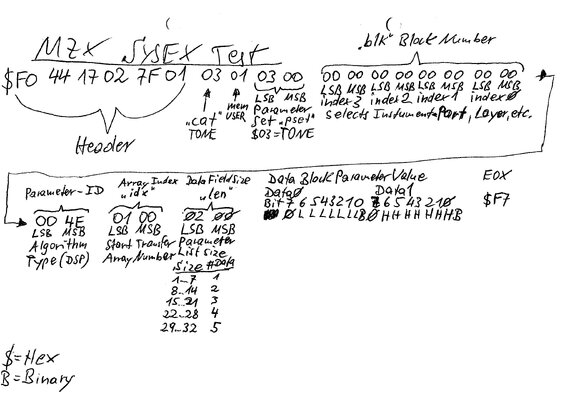 MZX SYSEX Test
„blk" Block Number
$F0 44 17 02 7F 01 03 01 03 00 00 00 00 00 00 00 00 00
LSB MSB LSB MSB LSB MSB LSB MSB LSB MSB
Header
„cat" TONE
mem USER
Parameter Set „pset"
$03=TONE
index3 index2 index1 index0
selects Instrument Part, Layer, etc.
Parameter-ID
Array Index „idx"
DataFieldSize „len"
Data Block Parameter Value
EOX
Data0 Data1
00 4E 01 00 02 00 Bit 7 6 5 4 3 2 1 0 7 6 5 4 3 2 1 0 $F7
LSB MSB LSB MSB LSB MSB
Algorithm Type (DSP)
Start Transfer Array Number
Parameter List size
Size #Data
1..7 1
8..14 2
15..21 3
22..28 4
29..32 5
$=Hex
B=Binary